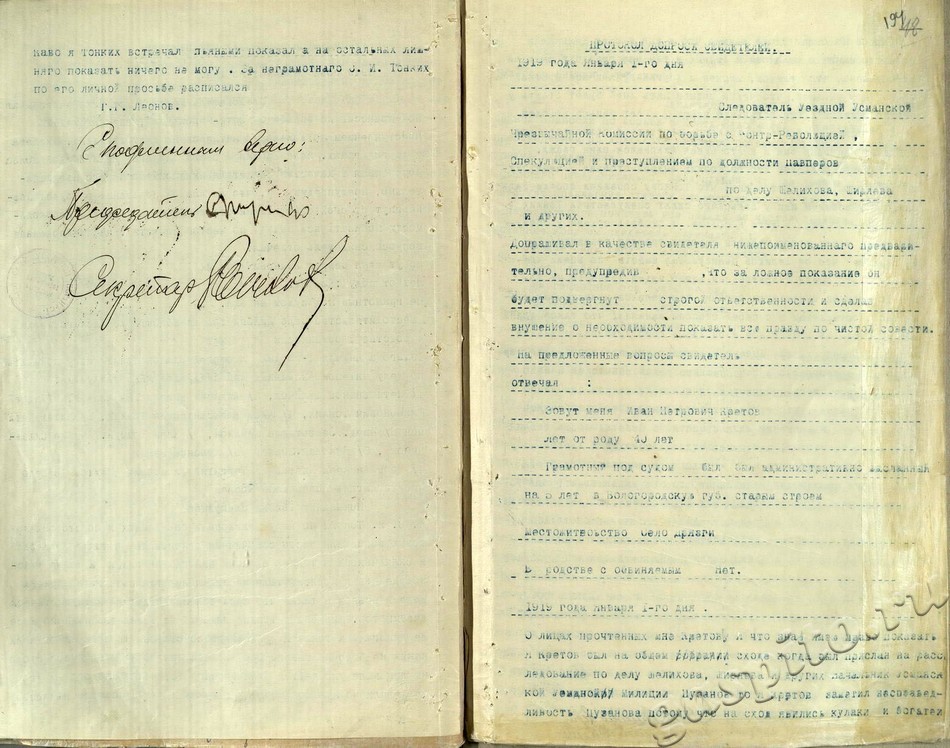 како я Тонких встречал пьяными показал а на остальных лиш-
няго показать ничего не могу . За неграмотнаго С. И. Тонких
по его личной просьбе расписался
Г.Г. Леонов.
С подлинным верно:
Председатель
Секретарь
197
ПРОТОКОЛ ДОПРОСА СВИДЕТЕЛЯ.
1919 года января 1-го дня
Следователь Уездной Усманской
Чрезвычайной Комиссии по борьбе с Контр-Революцией ,
Спекуляцией и преступлением по должности Павперов
по делу Шелихова, Ширяева
и других.
допрашивал в качестве свидетеля нижепоименованнаго предвари-
тельно, предупредив ,что за ложное показание он
будет подвергнут строгой ответственности и сделав
внушение о необходимости показать всю правду по чистой совести.
На предложенные вопросы свидетель
отвечая :
Зовут меня Иван Петрович Кретов
лет от роду 40 лет
Грамотный под судом был был административно высланный
на 3 лет в Вологородскую губ. старым строем
Местожительство село Дрязги
В родстве с обвиняемым нет.
1919 года января 1-го дня .
О лицах прочтенных мне Кретову я что знаю показать
я Кретов был на общем собрании сходе когда был прислан на расс
ледование по делу Шелихова, и других начальник Усманск
кой уездной Милиции Пузанов то я Кретов заметил несправед-
ливость Пузанова потому что на сход явились кулаки и богатеи
gaspito.ru